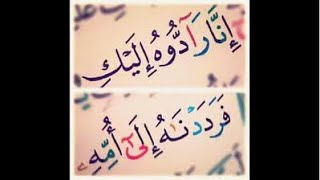 إِنَّا رَآدُّوهُ إِلَيْكِ
فَرَدَدْنَٰهُ إِلَىٰٓ أُمِّهِۦ